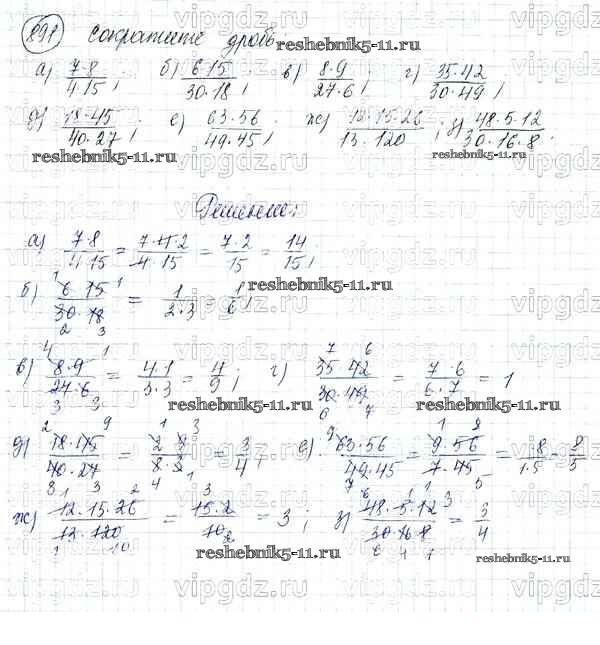 891 Сократите дробь
а) 7·8/4·15; б) 6·15/30·18; в) 8·9/27·6; г) 35·42/30·49;
д) 18·45/40·27; е) 63·56/49·45; ж) 12·15·26/13·120; з) 48·5·12/30·16·8.
Решение:
а) 7·8/4·15 = 7·4·2/4·15 = 7·2/15 = 14/15;
б) 6·15/30·18 = 1/2·3 = 1/6;
в) 8·9/27·6 = 4·1/3·3 = 4/9; г) 35·42/30·49 = 7·6/6·7 = 1
д) 18·45/40·27 = 2·9/8·3 = 3/4; е) 63·56/49·45 = 9·56/7·45 = 8/1·5 = 8/5
ж) 12·15·26/13·120 = 15·2/10 = 3; з) 48·5·12/30·16·8 = 3/4
reshebnik5-11.ru
vipgdz.ru